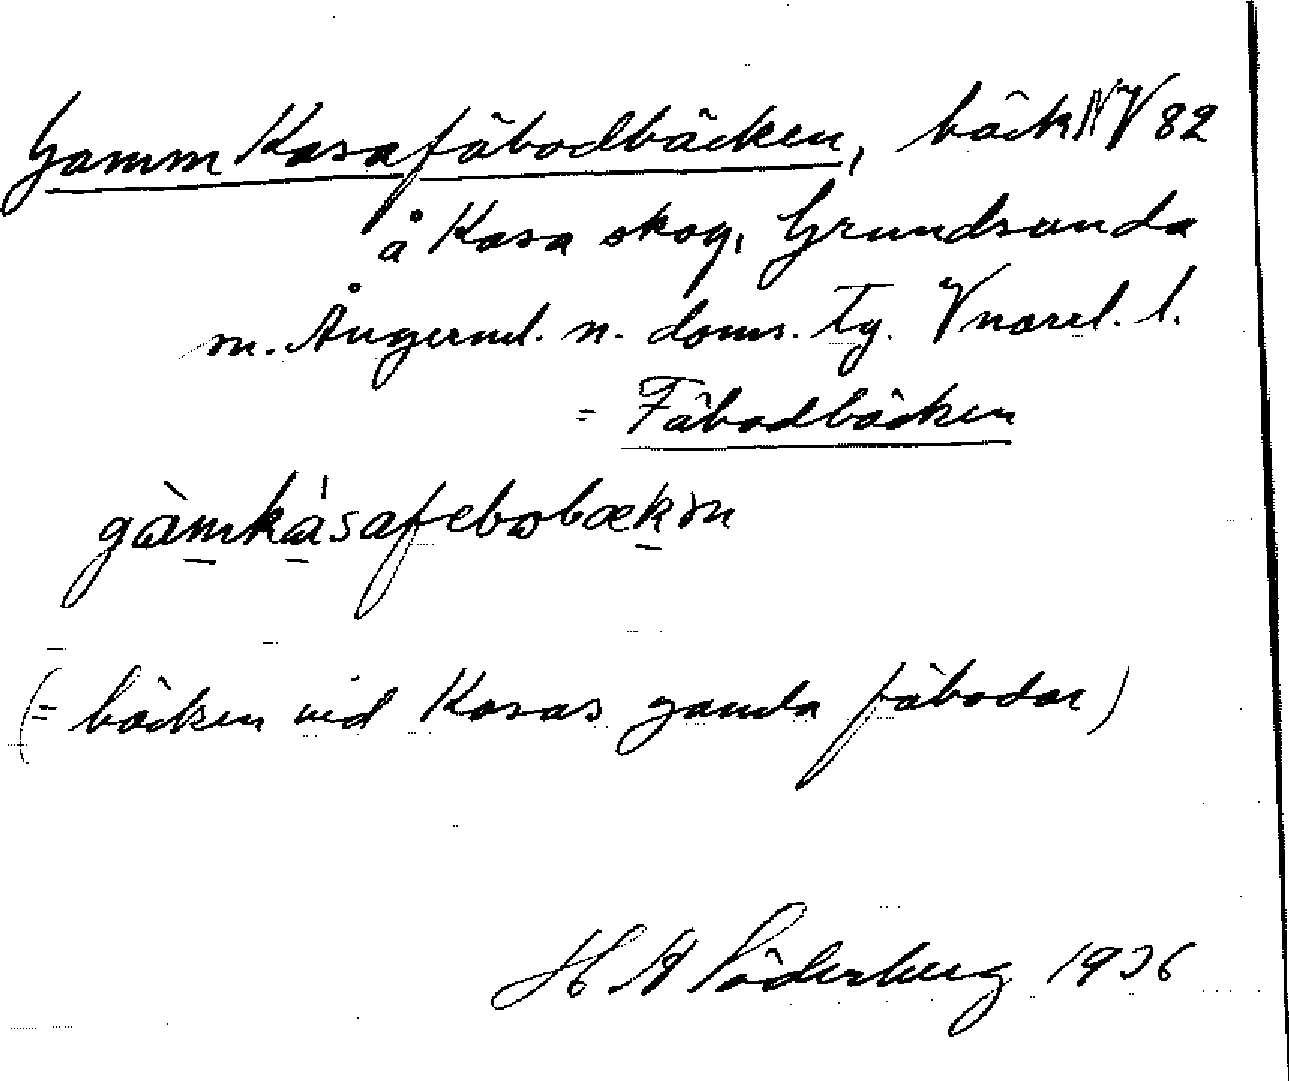 Gamm Kasafäbodbäcken, bäck NV 82
å Kasa skog, Grundsunda
m. Ångerml. n. doms. Tg. Vnorrl. l.
= Fäbodbäcken
(= bäcken vid Kasas gamla fäbodar)
H A Söderberg 1936